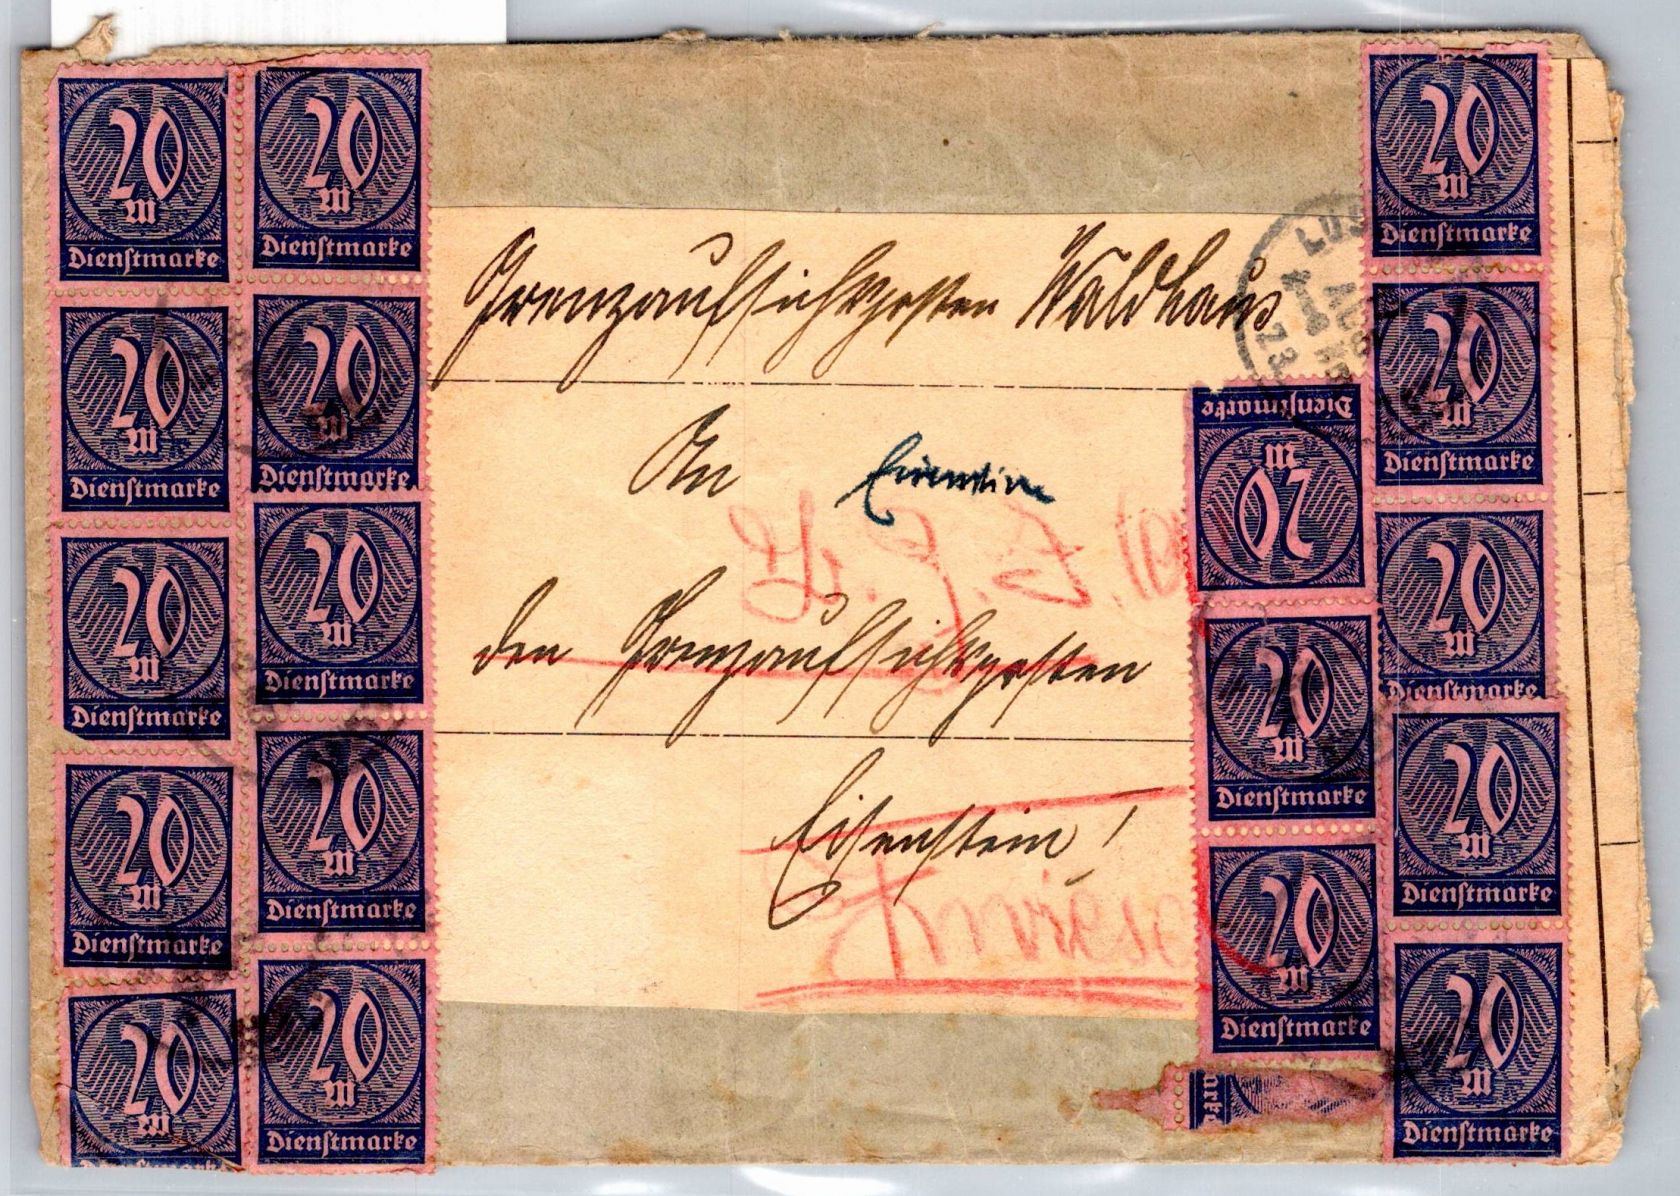 20 M Dienstmarke
20 M Dienstmarke
20 M Dienstmarke
20 M Dienstmarke
20 M Dienstmarke
20 M Dienstmarke
20 M Dienstmarke
20 M Dienstmarke
20 M Dienstmarke
20 M Dienstmarke
Grenzaufsichtsposten Waldhaus
An
den Grenzaufsichtsposten
Eisenstein!
LUS
AUG
23
20 M Dienstmarke
20 M Dienstmarke
20 M Dienstmarke
20 M Dienstmarke
20 M Dienstmarke
20 M Dienstmarke
20 M Dienstmarke
20 M Dienstmarke
arke